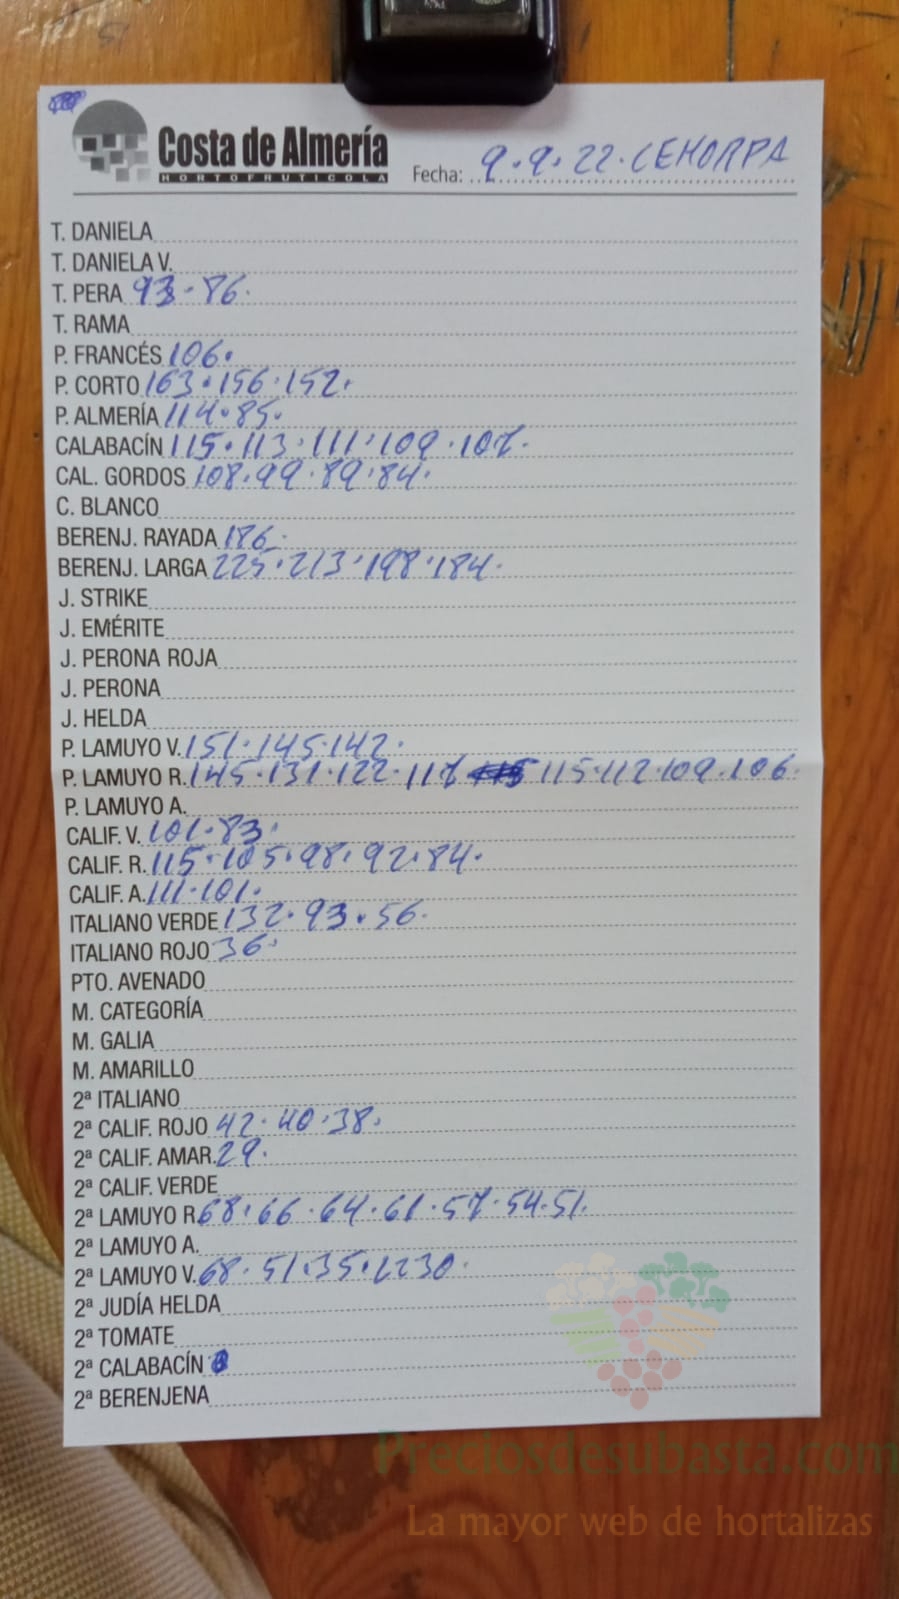 Costa de Almería
HORTOFRUTICOLA
Fecha: 9.9.22. CEHORPA
T. DANIELA
T. DANIELA V.
T. PERA 93.86.
T. RAMA
P. FRANCÉS 106.
P. CORTO 163.156.152.
P. ALMERÍA 114.85.
CALABACÍN 115.113.111.109.107.
CAL. GORDOS 108.99.89.84.
C. BLANCO
BERENJ. RAYADA 186.
BERENJ. LARGA 225.213.198.184.
J. STRIKE
J. EMÉRITE
J. PERONA ROJA
J. PERONA
J. HELDA
P. LAMUYO V. 151.145.142.
P. LAMUYO R. 145.131.122.117 115.112.109.106.
P. LAMUYO A.
CALIF. V. 101.83.
CALIF. R. 115.105.98.92.84.
CALIF. A. 111.101.
ITALIANO VERDE 132.93.56.
ITALIANO ROJO 36.
PTO. AVENADO
M. CATEGORÍA
M. GALIA
M. AMARILLO
2ª ITALIANO
2ª CALIF. ROJO 42.40.38.
2ª CALIF. AMAR. 29.
2ª CALIF. VERDE
2ª LAMUYO R. 68.66.64.61.57.54.51.
2ª LAMUYO A.
2ª LAMUYO V. 68.51.35.
2ª JUDÍA HELDA
2ª TOMATE
2ª CALABACÍN
2ª BERENJENA
Preciosdesubasta.com
La mayor web de hortalizas